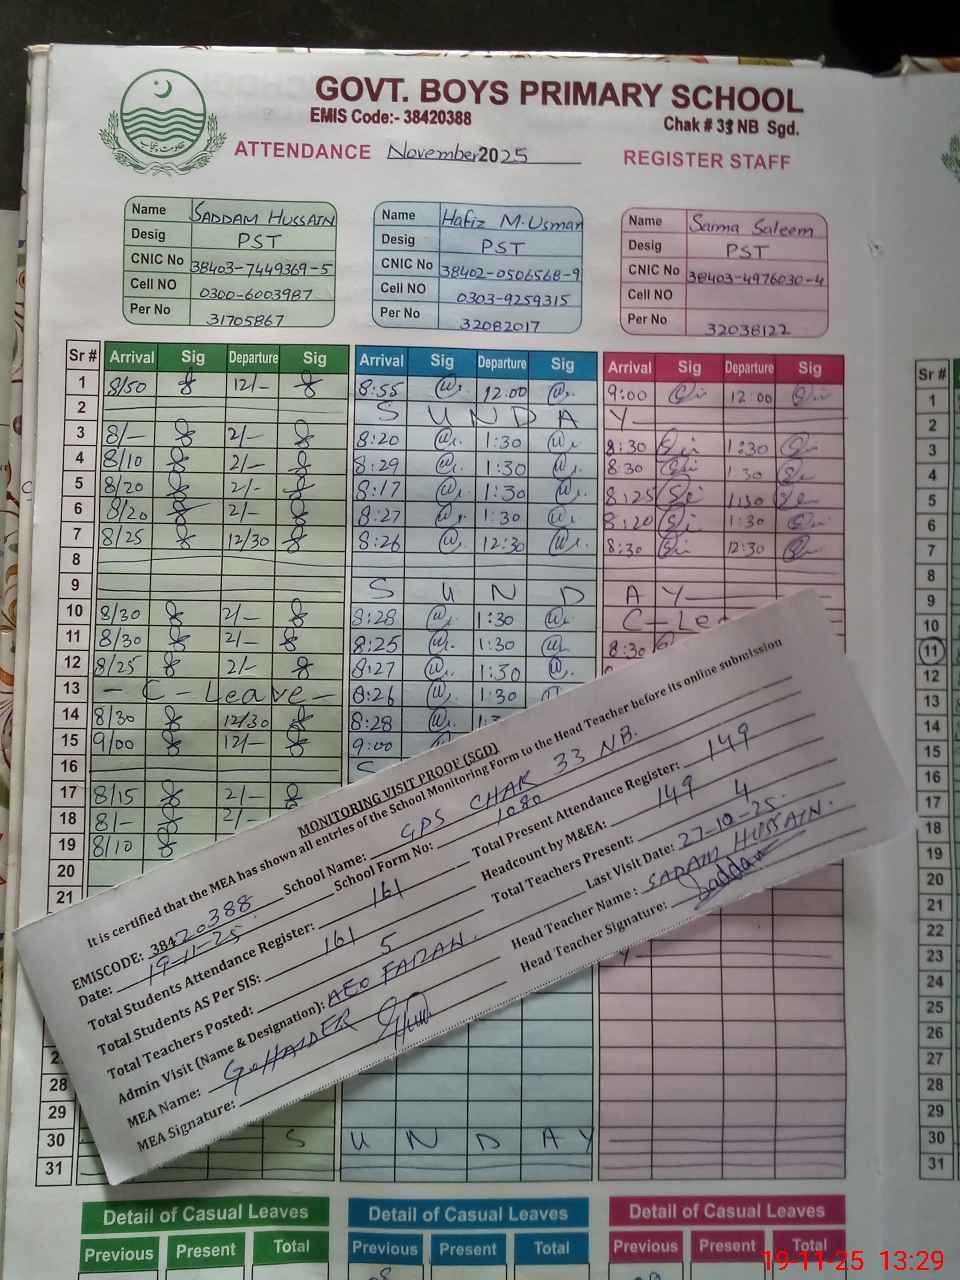 GOVT. BOYS PRIMARY SCHOOL
EMIS Code:- 38420388
Chak # 33 NB Sgd.
ATTENDANCE November 2025 REGISTER STAFF
Name SADDAM HUSSAIN
Desig PST
CNIC No 38403-7449369-5
Cell NO 0300-6003987
Per No 31705867
Name Hafiz M. Usman
Desig PST
CNIC No 38402-0506568-9
Cell NO 0303-9259315
Per No 32082017
Name Saima Saleem
Desig PST
CNIC No 38403-4976030-4
Cell NO
Per No 32038122
Sr # Arrival Sig Departure Sig Arrival Sig Departure Sig Arrival Sig Departure Sig
1 8/50 12/- 8:55 12:00 9:00 12:00
2 S U N D A Y
3 8/- 2/- 8:20 1:30 8:30 1:30
4 8/10 2/- 8:29 1:30 8:30 1:30
5 8/20 2/- 8:17 1:30 8:25 1:30
6 8/20 2/- 8:27 1:30 8:20 1:30
7 8/25 12/30 8:26 12:30 8:30 12:30
8
9 S U N D A Y
10 8/30 2/- 8:28 1:30 C-Le
11 8/30 2/- 8:25 1:30 8:30
12 8/25 2/- 8:27 1:30
13 - C - Leave - 8:26 1:30
14 8/30 12/30 8:28
15 9/00 12/- 9:00
16 S
17 8/15 2/-
18 8/- 2/-
19 8/10
20
21
23 Y
28
29
30 S U N D A Y
31
MONITORING VISIT PROOF (SGD)
It is certified that the MEA has shown all entries of the School Monitoring Form to the Head Teacher before its online submission
EMISCODE: 38420388 School Name: GPS CHAK 33 NB.
Date: 19-11-25 School Form No: 1080
Total Students Attendance Register: 161 Total Present Attendance Register: 149
Total Students AS Per SIS: 161 Headcount by M&EA: 149
Total Teachers Posted: 5 Total Teachers Present: 4
Admin Visit (Name & Designation): AEO FARAH. Last Visit Date: 27-10-25.
MEA Name: G. HAIDER Head Teacher Name: SADAM HUSSAIN.
MEA Signature: Head Teacher Signature: Saddam
Detail of Casual Leaves Detail of Casual Leaves Detail of Casual Leaves
Previous Present Total Previous Present Total Previous Present Total
Sr #
1
2
3
4
5
6
7
8
9
10
11
12
13
14
15
16
17
18
19
20
21
22
23
24
25
26
27
28
29
30
31
19-11-25 13:29